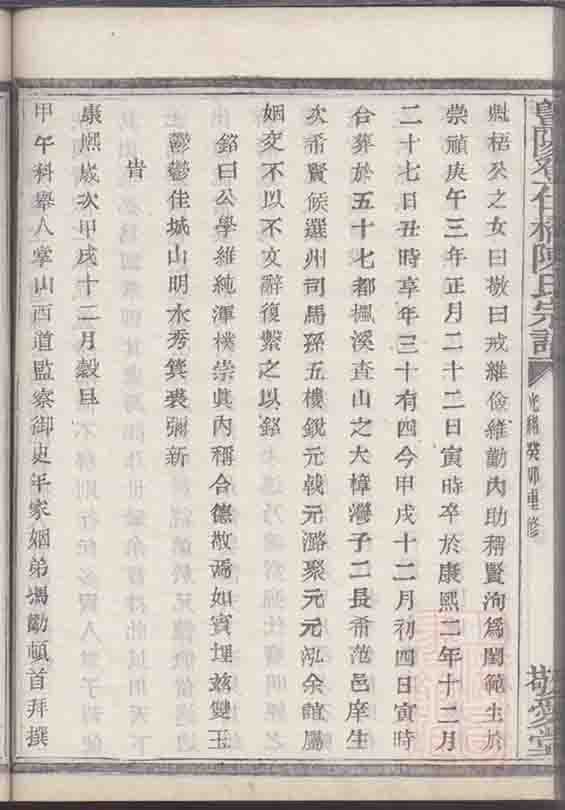 陳氏宗譜
光緒癸卯重修
敬愛堂
與梧公之女曰敬曰戒維儉維勤內助稱賢洵爲閨範生於
崇禎庚午三年正月二十二日寅時卒於康熙二年十二月
二十七日丑時享年三十有四今甲戌十二月初四日寅時
合葬於五十七都楓溪查山之大樟灣子二長希范邑庠生
次希賢候選州司馬孫五樓銳元戟元潞聚元元泓余誼屬
姻交不以不文辭復繫之以銘
銘曰公學維純渾樸崇眞內稱合德敬焉如賓埋茲雙玉
鬱鬱佳城山明水秀箕裘彌新
旹
康熙歲次甲戌十二月穀旦
甲午科舉人掌山西道監察御史年家姻弟馮勸頓首拜撰